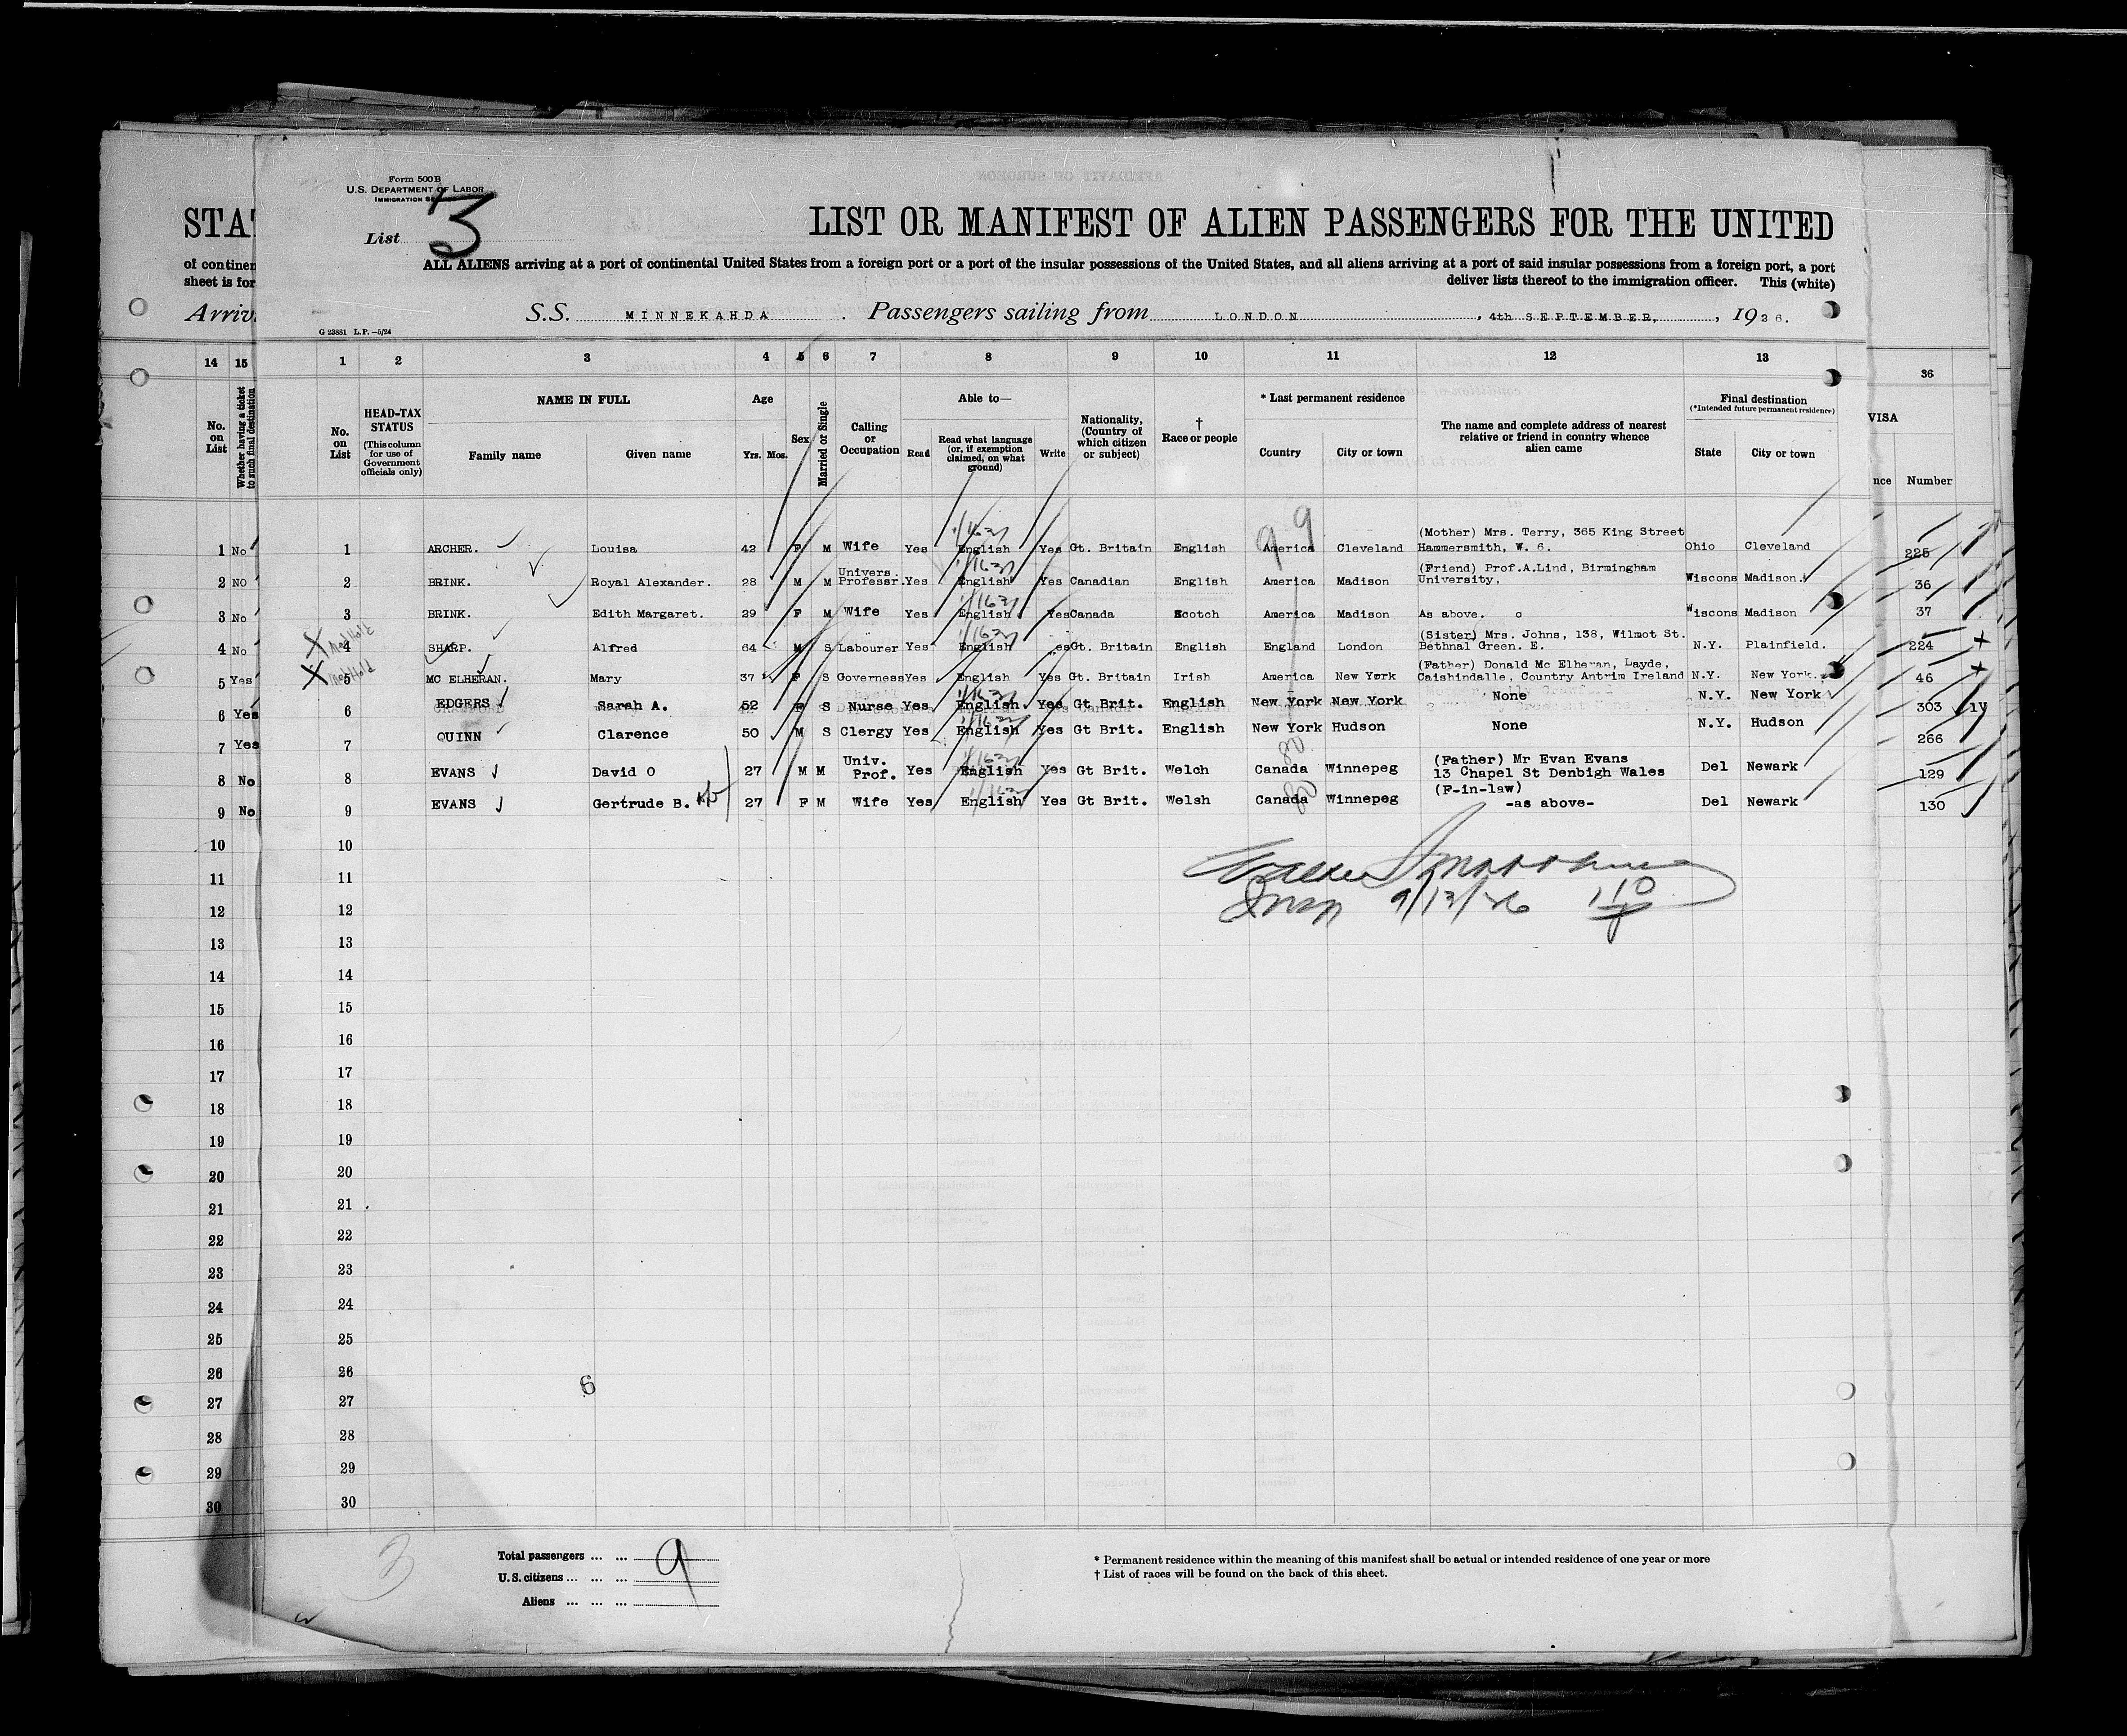 Form 500B
U.S. DEPARTMENT OF LABOR
IMMIGRATION
List 3
STAT
LIST OR MANIFEST OF ALIEN PASSENGERS FOR THE UNITED
of continen
ALL ALIENS arriving at a port of continental United States from a foreign port or a port of the insular possessions of the United States, and all aliens arriving at a port of said insular possessions from a foreign port, a port
sheet is for
deliver lists thereof to the immigration officer. This (white)
Arriv
S.S. MINNEKAHDA. Passengers sailing from LONDON, 4th SEPTEMBER, 1926.
G 23881 L.P.—5/24
14 15 1 2 3 4 5 6 7 8 9 10 11 12 13 36
No. on List
Whether having a ticket to such final destination
No. on List
HEAD-TAX STATUS
(This column for use of Government officials only)
NAME IN FULL
Family name
Given name
Age
Yrs. Mos.
Sex
Married or Single
Calling or Occupation
Able to—
Read
Read what language (or, if exemption claimed, on what ground)
Write
Nationality, (Country of which citizen or subject)
† Race or people
* Last permanent residence
Country
City or town
The name and complete address of nearest relative or friend in country whence alien came
Final destination
(*Intended future permanent residence)
State
City or town
VISA
nce
Number
99
(Mother) Mrs. Terry, 365 King Street
1 No 1 ARCHER. Louisa 42 F M Wife Yes English Yes Gt. Britain English America Cleveland Hammersmith, W. 6. Ohio Cleveland 225
Univers. (Friend) Prof.A.Lind, Birmingham
2 NO 2 BRINK. Royal Alexander. 28 M M Professr. Yes English Yes Canadian English America Madison University, Wiscons Madison. 36
3 No 3 BRINK. Edith Margaret. 29 F M Wife Yes English Yes Canada Scotch America Madison As above. c Wiscons Madison 37
(Sister) Mrs. Johns, 138, Wilmot St.
4 No 4 SHARP. Alfred 64 M S Labourer Yes English Yes Gt. Britain English England London Bethnal Green. E. N.Y. Plainfield. 224
(Father) Donald Mc Elheran, Layde,
5 Yes 5 MC ELHERAN. Mary 37 F S Governess Yes English Yes Gt. Britain Irish America New York Caishindalle, Country Antrim Ireland N.Y. New York. 46
6 Yes 6 EDGERS Sarah A. 52 F S Nurse Yes English Yes Gt Brit. English New York New York None N.Y. New York 303
7 Yes 7 QUINN Clarence 50 M S Clergy Yes English Yes Gt Brit. English New York Hudson None N.Y. Hudson 266
80
Univ. (Father) Mr Evan Evans
8 No 8 EVANS David O 27 M M Prof. Yes English Yes Gt Brit. Welch Canada Winnepeg 13 Chapel St Denbigh Wales Del Newark 129
(F-in-law)
9 No 9 EVANS Gertrude B. 27 F M Wife Yes English Yes Gt Brit. Welsh Canada Winnepeg -as above- Del Newark 130
80
10 10
11 11
12 12
9/13/26
13 13
14 14
15 15
16 16
17 17
18 18
19 19
20 20
21 21
22 22
23 23
24 24
25 25
26 26
6
27 27
28 28
29 29
30 30
3
Total passengers ... ... 9
U.S. citizens ... ... ...
Aliens ... ... ...
* Permanent residence within the meaning of this manifest shall be actual or intended residence of one year or more
† List of races will be found on the back of this sheet.